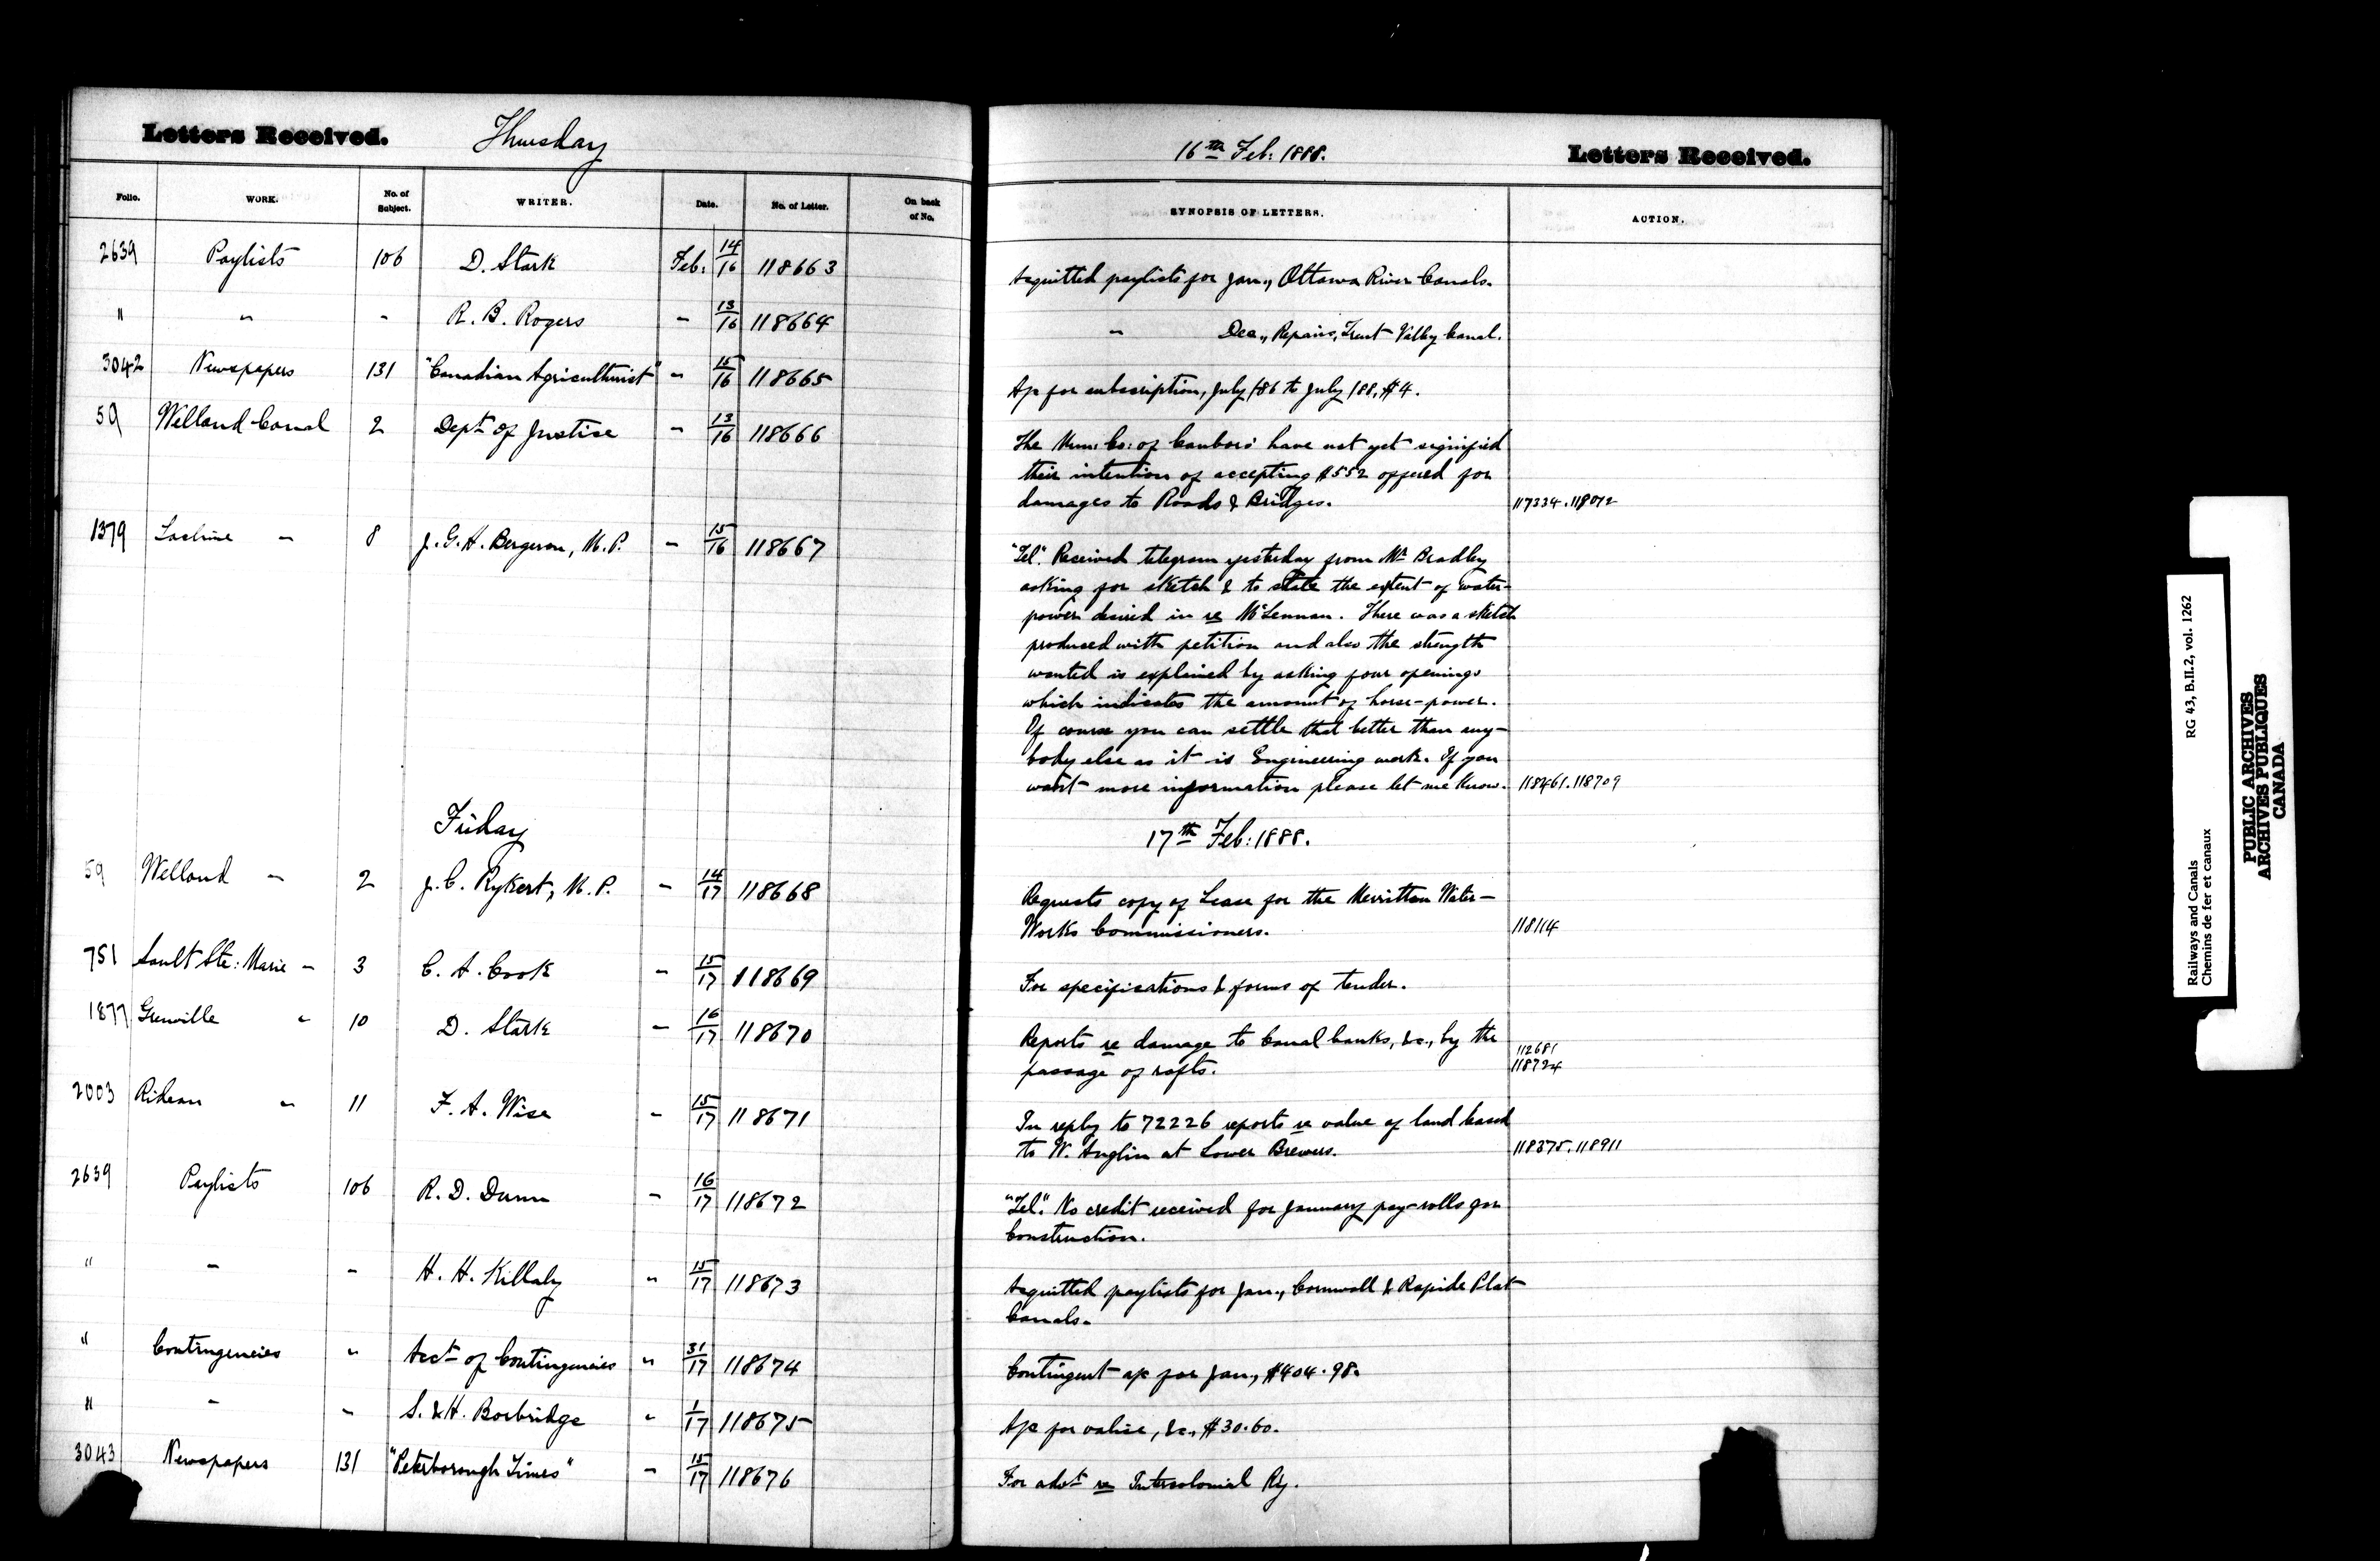 Letters Received. Thursday
Folio. WORK. No. of Subject. WRITER. Date. No. of Letter. On back of No.
2639 Paylists 106 D. Stark Feb: 14/16 118663
" " - R. B. Rogers - 13/16 118664
3042 Newspapers 131 "Canadian Agriculturist" - 15/16 118665
59 Welland Canal 2 Dept of Justice - 13/16 118666
1379 Lachine - 8 J. G. H. Bergeron, M.P. - 15/16 118667
Friday
59 Welland - 2 J. C. Rykert, M.P. - 14/17 118668
751 Sault Ste: Marie - 3 C. A. Cook - 15/17 118669
1877 Grenville " 10 D. Stark - 16/17 118670
2003 Rideau " 11 F. A. Wise - 15/17 118671
2639 Paylists 106 R. D. Dunn - 16/17 118672
" - - H. H. Killaly " 15/17 118673
" Contingencies " Acct of Contingencies " 31/17 118674
" - - S. & H. Borbridge " 1/17 118675
3043 Newspapers 131 "Peterborough Times" - 15/17 118676
16th Feb: 1888. Letters Received.
SYNOPSIS OF LETTERS. ACTION.
Acquitted paylists for Jan., Ottawa River Canals.
" Dec., Repairs, Trent Valley Canal.
A/c for subscription, July /86 to July /88, $4.
The Mun: Co: of Canboro' have not yet signified
their intention of accepting $552 offered for
damages to Roads & Bridges. 117334.118012
"Tel". Received telegram yesterday from Mr Bradley
asking for sketch & to state the extent of water-
power desired in re McLennan. There was a sketch
produced with petition and also the strength
wanted is explained by asking four openings
which indicates the amount of horse-power.
Of course you can settle that better than any-
body else as it is Engineering work. If you
want more information please let me know. 118461.118709
17th Feb: 1888.
Requests copy of Lease for the Merritton Water-
Works Commissioners. 118114
For specifications & forms of tender.
Reports re damage to Canal banks, &c., by the 112681
passage of rafts. 118724
In reply to 72226 reports re value of land leased
to W. Anglin at Lower Brewers. 118375.118911
"Tel". No credit received for January pay-rolls for
Construction.
Acquitted paylists for Jan., Cornwall & Rapide Plat
Canals.
Contingent a/c for Jan., $404.98.
A/c for valise, &c., $30.60.
For advt re Intercolonial Ry.
Railways and Canals RG 43, B.II.2, vol. 1262
Chemins de fer et canaux
PUBLIC ARCHIVES
ARCHIVES PUBLIQUES
CANADA